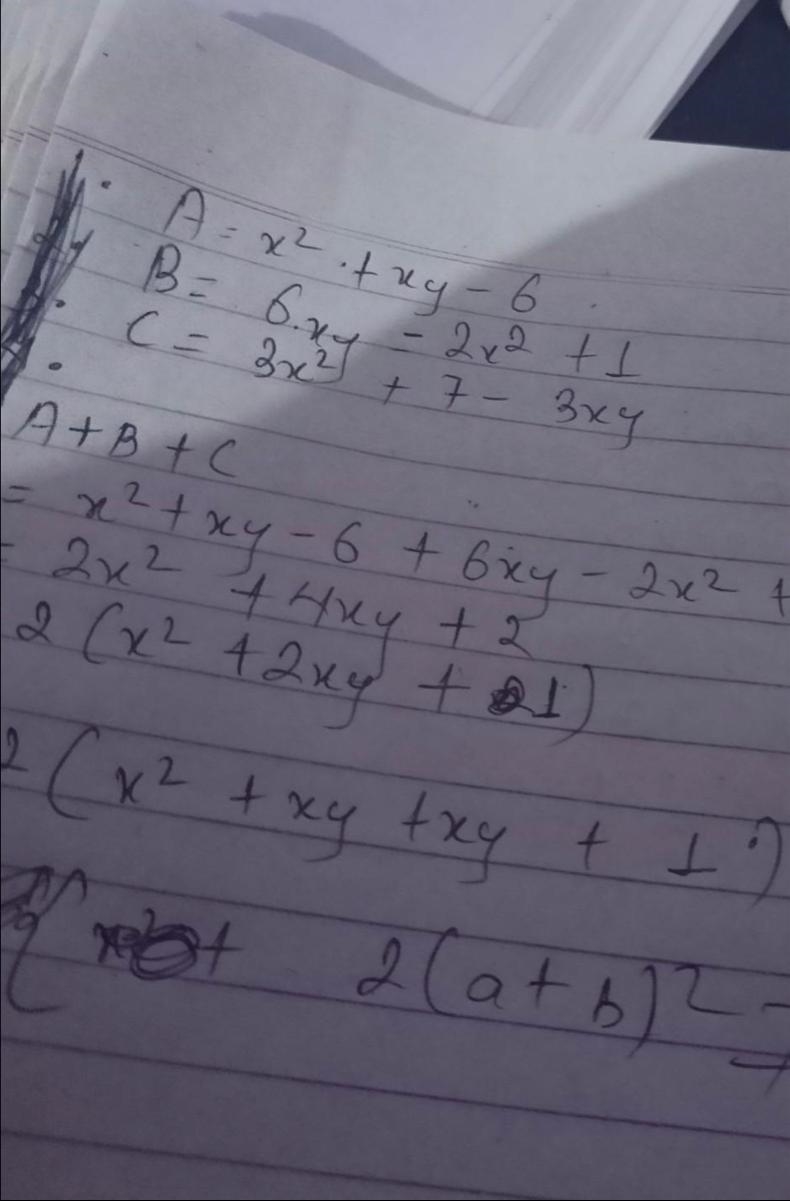 A = x² + xy - 6
B = 6xy - 2x² + 1
C = 3x² + 7 - 3xy
A + B + C
= x² + xy - 6 + 6xy - 2x² +
= 2x² + 4xy + 2
2 (x² + 2xy + 1)
2 (x² + xy + xy + 1)
2(a + b)² =